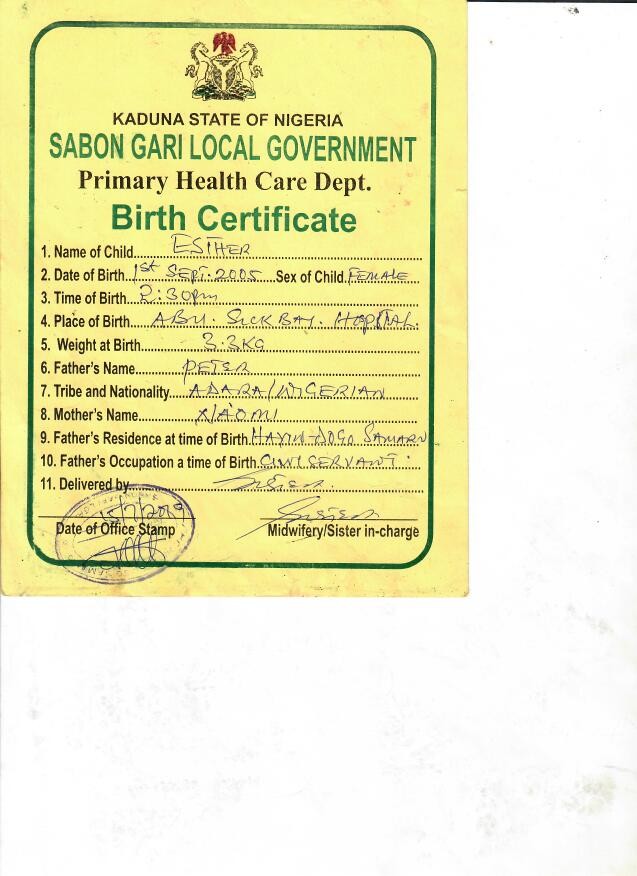 KADUNA STATE OF NIGERIA
SABON GARI LOCAL GOVERNMENT
Primary Health Care Dept.
Birth Certificate
1. Name of Child ESTHER
2. Date of Birth 1st SEPT. 2005 Sex of Child FEMALE
3. Time of Birth 2:30pm
4. Place of Birth ABU. SICK BAY. HOSPITAL.
5. Weight at Birth 3.3KG
6. Father's Name PETER
7. Tribe and Nationality ADARA/NIGERIAN
8. Mother's Name
9. Father's Residence at time of Birth HAYIN-DOGO SAMARU
10. Father's Occupation a time of Birth CIVIL SERVANT
11. Delivered by
Date of Office Stamp
Midwifery/Sister in-charge